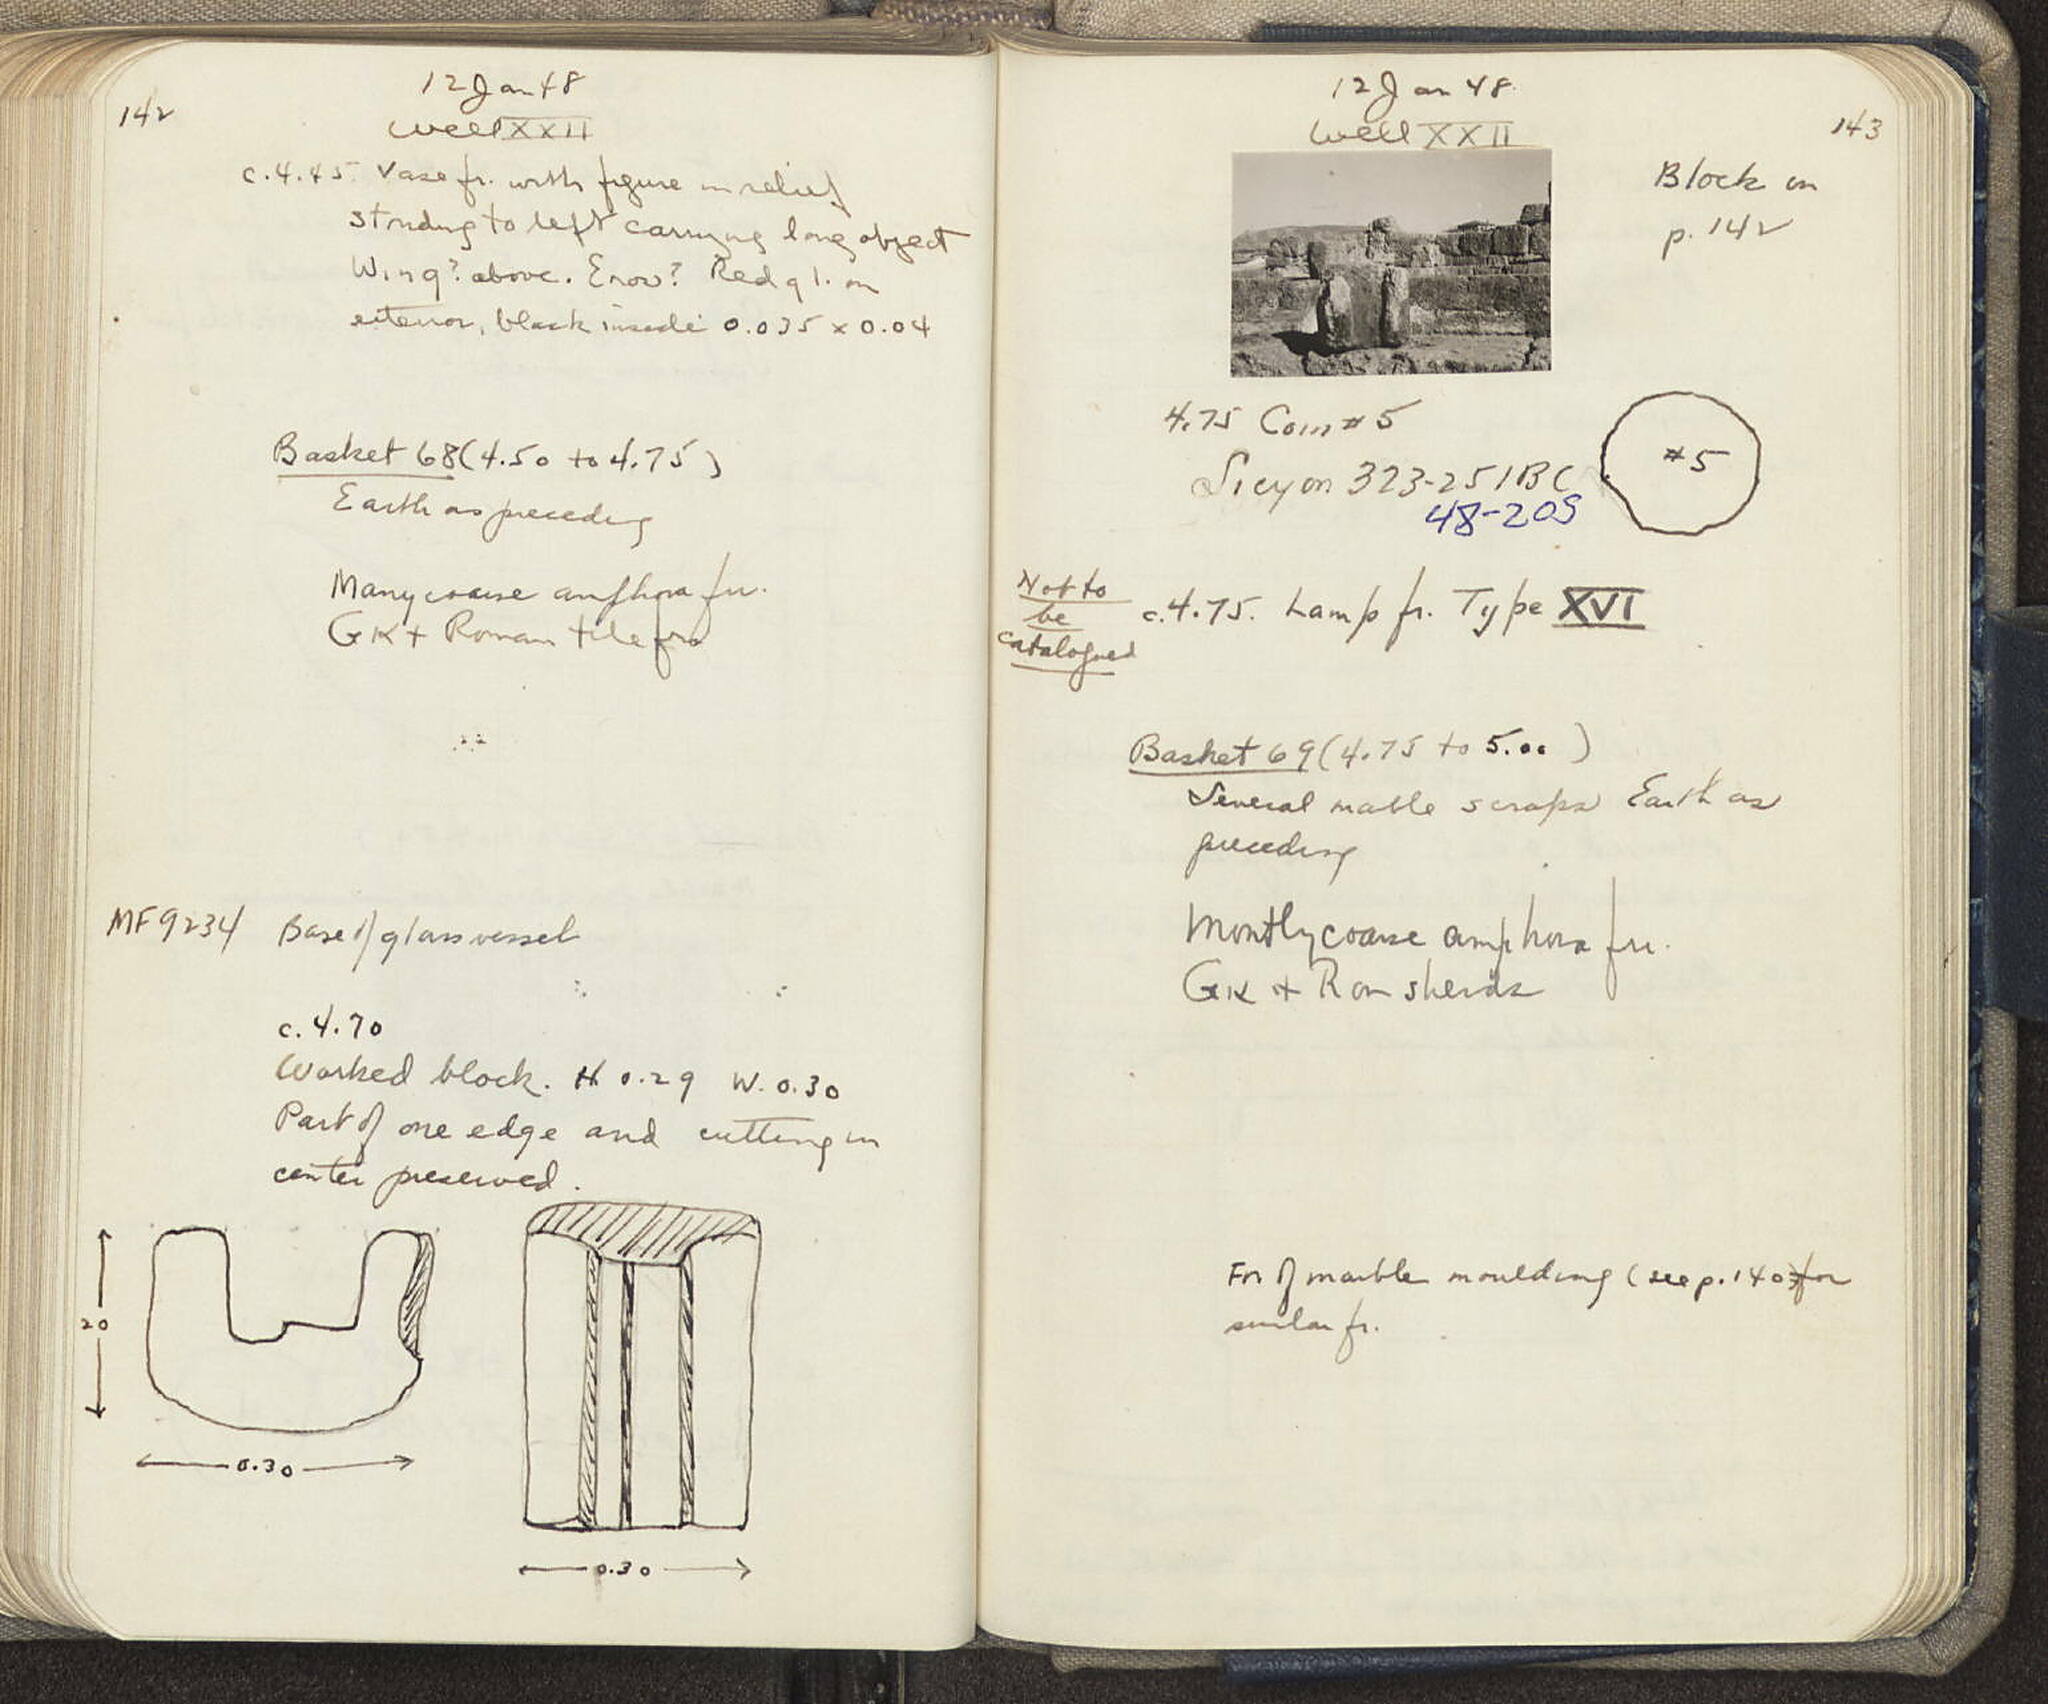 142
12 Jan 48
Well XXII
c. 4.45. Vase fr. with figure in relief
striding to left carrying long object
Wing? above. Eros? Red gl. on
exterior, black inside 0.035 x 0.04
Basket 68 (4.50 to 4.75)
Earth as preceding
Many coarse amphora frr.
GK + Roman tile frs
MF 9234 Base of glass vessel
c. 4.70
Worked block. H 0.29 W. 0.30
Part of one edge and cutting in
center preserved.
20
0.30
0.30
12 Jan 48.
Well XXII
143
Block on
p. 142
4.75 Coin #5
Sicyon 323-251 BC
48-205
#5
Not to
be
catalogued
c. 4.75. Lamp fr. Type XVI
Basket 69 (4.75 to 5.00)
Several marble scraps Earth as
preceding
Mostly coarse amphora frr.
GK + Rom sherds
Fr. of marble moulding (see p. 140 for
similar fr.